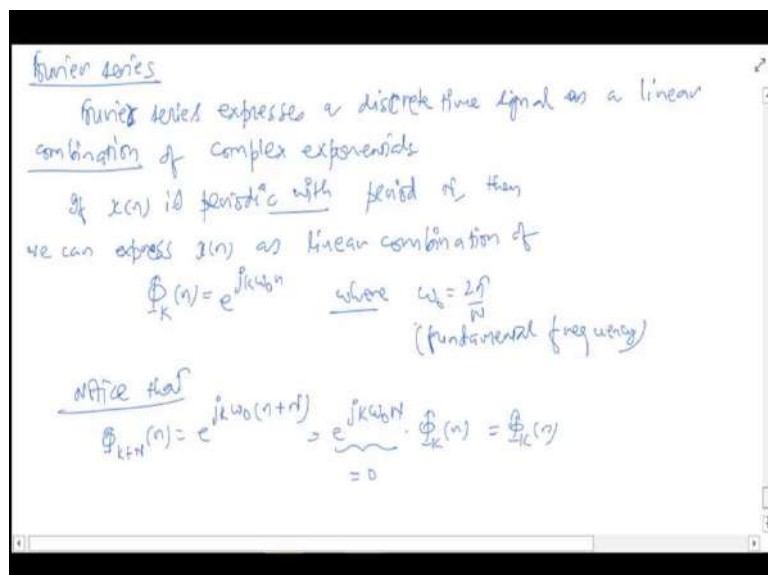 Fourier series
Fourier series expresses a discrete time signal as a linear
combination of complex exponentials
If x(n) is periodic with period N, then
we can express x(n) as linear combination of
Φ_K(n) = e^{jkω₀n} where ω₀ = 2π/N
(fundamental frequency)
Notice that
Φ_{k+N}(n) = e^{jkω₀(n+N)} = e^{jkω₀N} · Φ_K(n) = Φ_K(n)
= 0